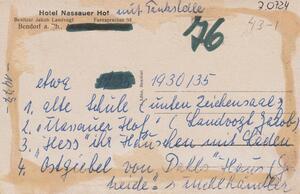 Hotel Nassauer Hof mit Tankstelle
Besitzer Jakob Landvogt Fernsprecher 58
Bendorf a. Rh.
70724
43-1
76
etwa 1930/35
1. alte Schule (unten Zeichensaal)
2. "Nassauer Hof" (Landvogt Jacob)
3. "Hess" ihr Häuschen mit Laden
4. Ostgiebel von Haus